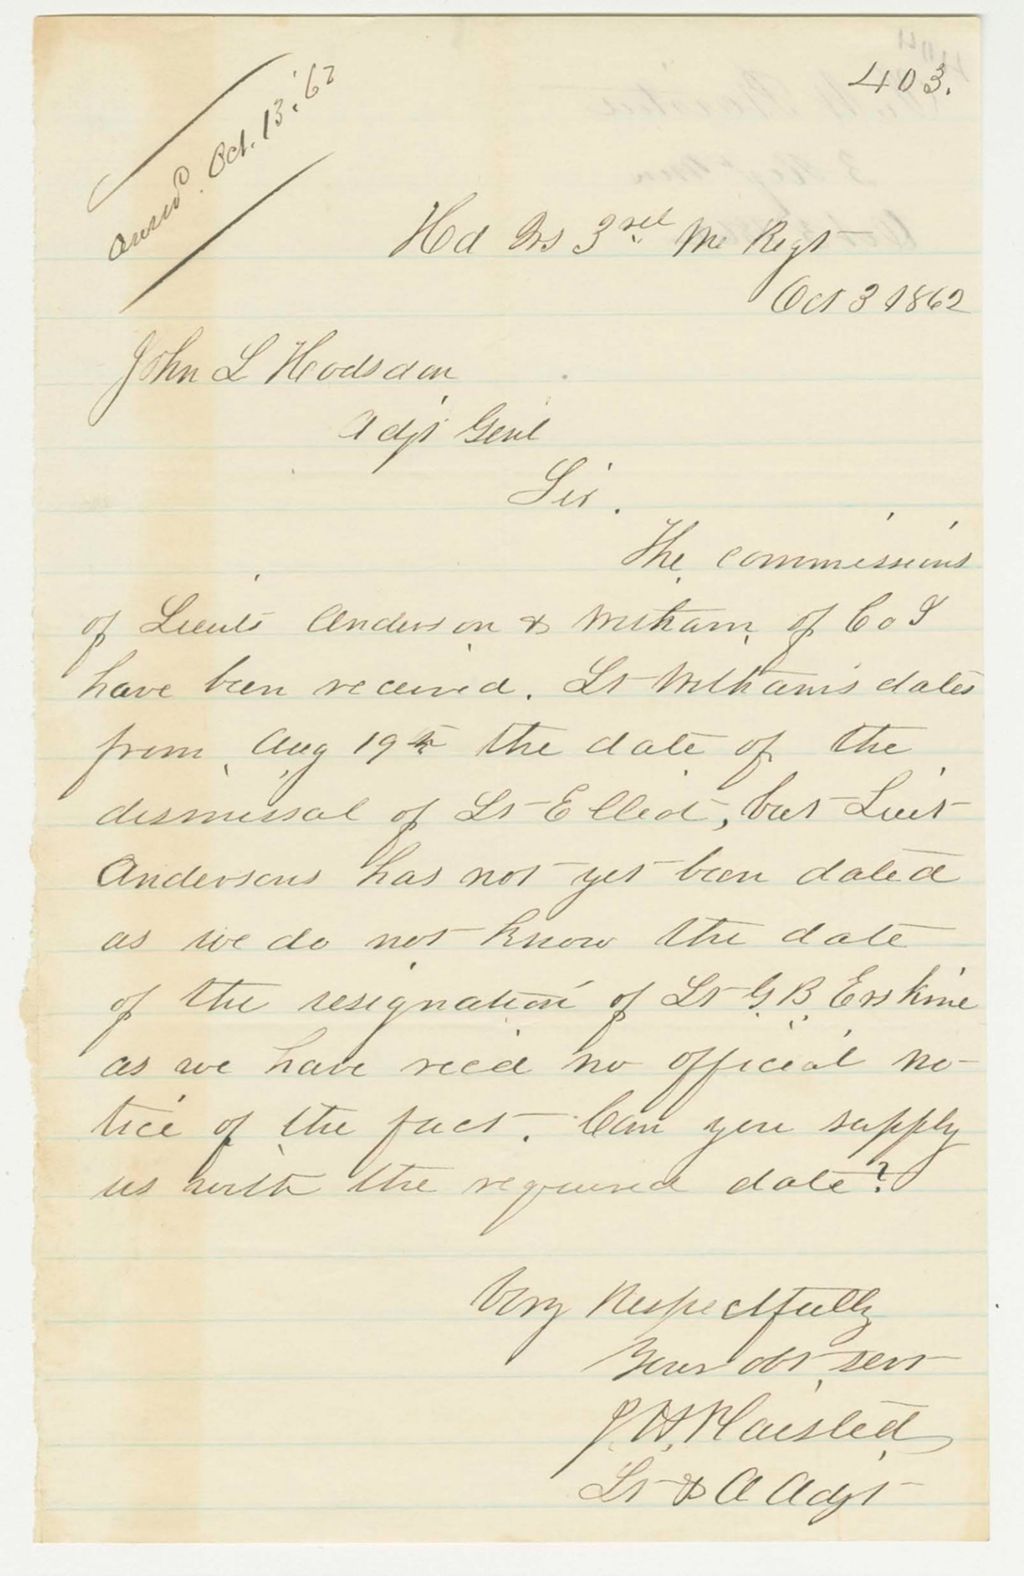 403.
Answd. Oct. 13. '62
Hd Qrs 3rd Me Regt
Oct 3 1862
John L Hodsdon
Adjt Genl
Sir.
The commissions
of Lieuts Anderson & Witham of Co I
have been received. Lt Withams dates
from Aug 19th the date of the
dismissal of Lt Elliot, but Lieut
Andersons has not yet been dated
as we do not know the date
of the resignation of Lt G B Erskine
as we have rec'd no official no-
tice of the fact. Can you supply
us with the required date?
Very Respectfully
Your obt servt
J. H. Plaisted
Lt & A Adjt